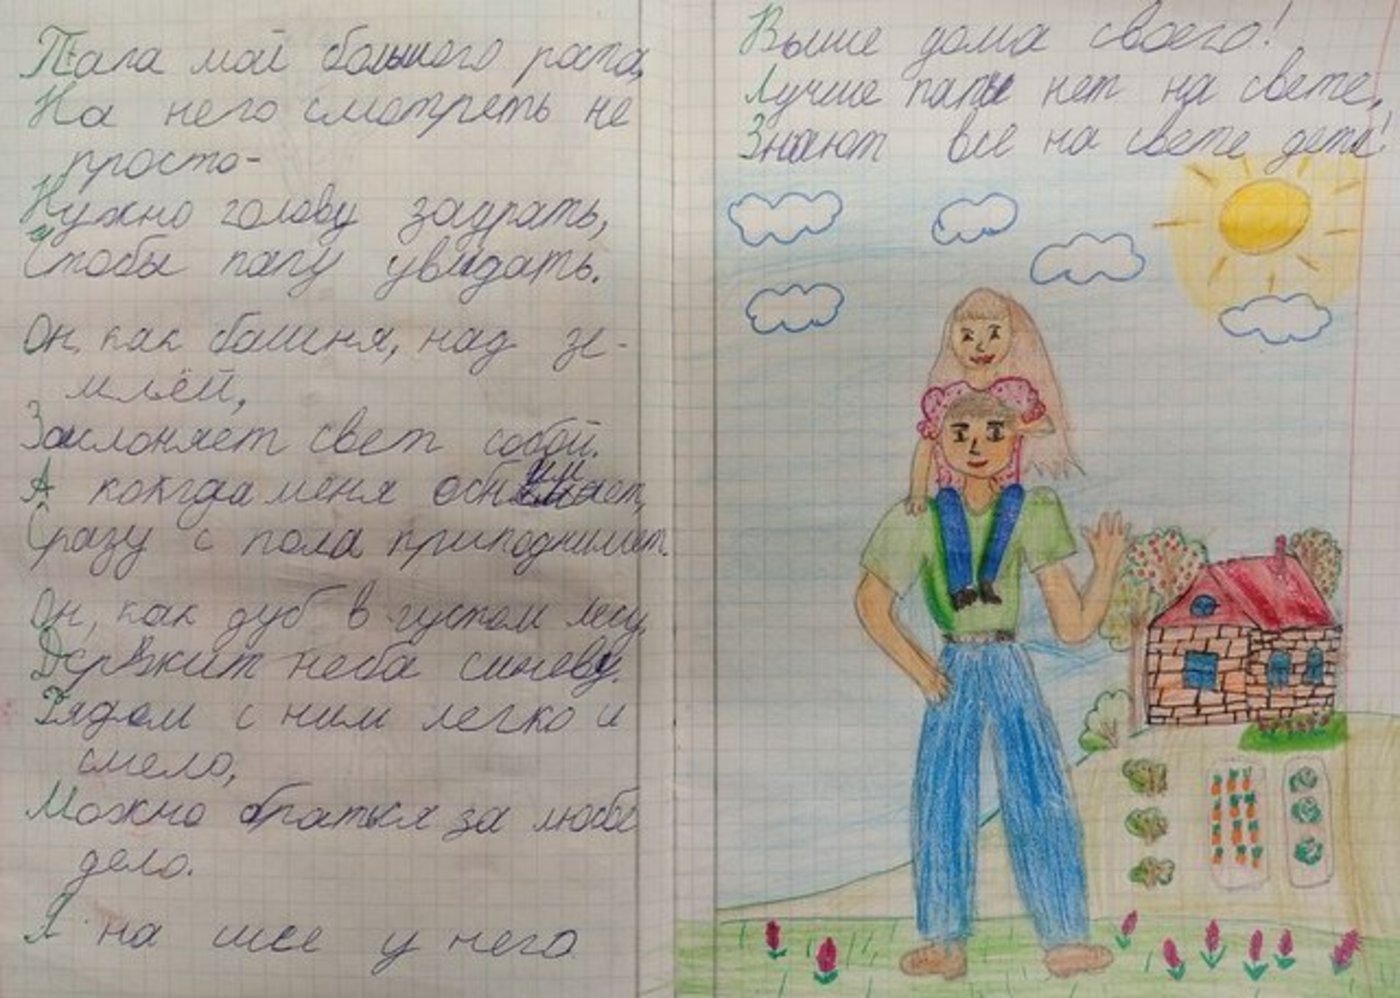 Папа мой большого роста,
На него смотреть не
просто-
Нужно голову задрать,
Чтобы папу увидать.
Он, как башня, над зе-
млёй,
Заслоняет свет собой.
А когда меня обнимает,
Сразу с пола приподнимает.
Он, как дуб в густом лесу,
Держит неба синеву.
Рядом с ним легко и
смело,
Можно браться за любое
дело.
Я на шее у него
Выше дома своего!
Лучше папы нет на свете,
Знают все на свете дети!